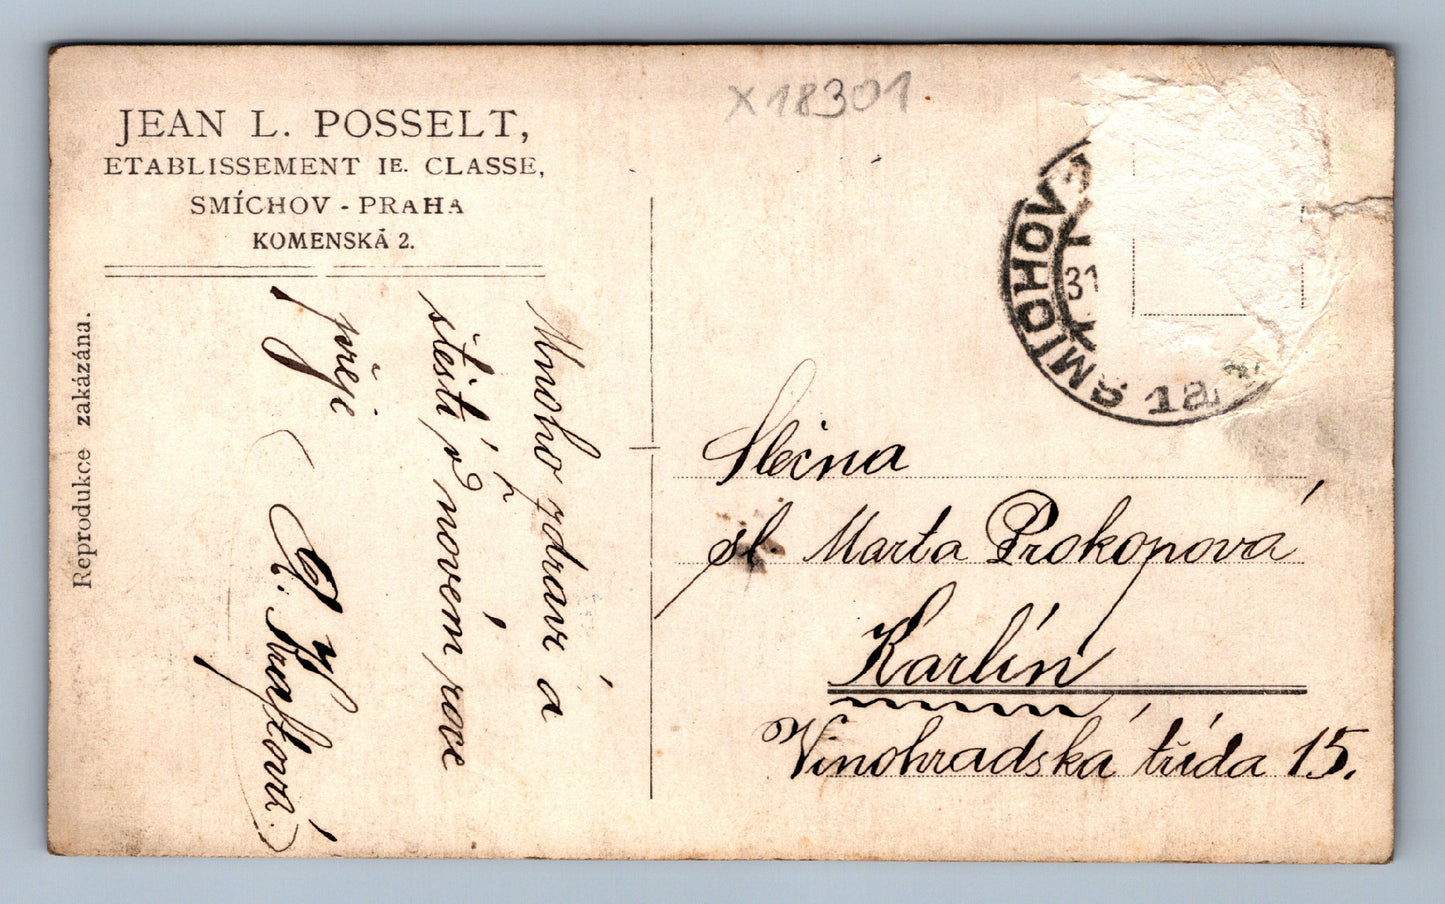 JEAN L. POSSELT,
ETABLISSEMENT IE. CLASSE,
SMÍCHOV - PRAHA
KOMENSKÁ 2.
Reprodukce zakázána.
X18301
SMÍCHOV
31
XII
12
Mnoho zdraví a
štěstí v novém roce
přeje
Kraftová.
Slečna
sl. Marta Prokopová
Karlín
Vinohradská třída 15.